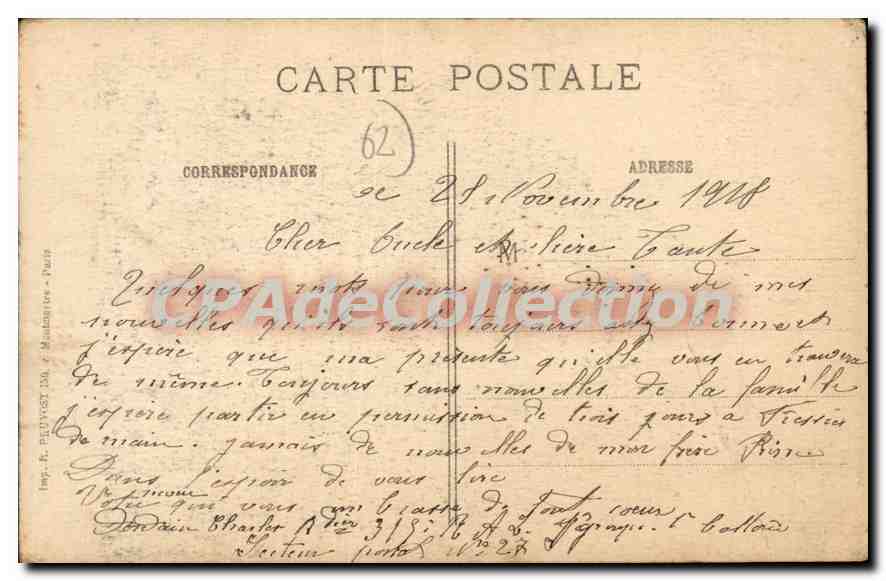 CARTE POSTALE
62
CORRESPONDANCE
ADRESSE
Le 28 Novembre 1918
Cher Oncle et chère Tante
Quelques mots pour vous donné de mes
nouvelles qu'ils sont toujours bonne et
j'espère que ma présente qu'elle vous en trouvera
de même. Toujours sans nouvelles de la famille
j'espère partir en permission de trois jours a
de main. jamais de nouvelles de mon frère
Dans l'espoir de vous lire
Votre neveu qui vous embrasse de tout coeur
Charles 315e
Secteur postal No 27
Imp. R. PRUVOST Montmartre - Paris
CPAdeCollection